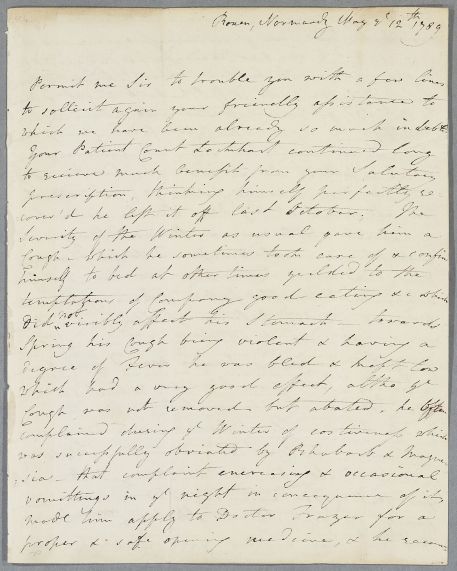 Rouen, Normandy May ye 12th 1789
Permit me Sir to trouble you with a few lines
to sollicit again your friendly assistance to
which we have been already so much indebted
Your Patient Count Lockhart continued long
to receive much benefit from your Salutary
prescription, thinking himself perfectly re-
cover'd he left it off last October. The
Severity of the Winter as usual gave him a
Cough - which he sometimes took care of & confin
himself to bed at other times yeilded to the
temptations of Company good eating &c which
did not visibly affect his Stomach - towards
Spring his Cough being violent & having a
degree of Fever he was bled & kept low
which had a very good effect, altho ye
Cough was not removed but abated, he often
complained during ye Winter of costiveness which
was successfully obviated by Rhubarb & Magne
sia - that complaint encreasing & occasional
vomittings in ye night in consequence of its
made him apply to Doctor Frazer for a
proper & safe opening medicine, & he recom